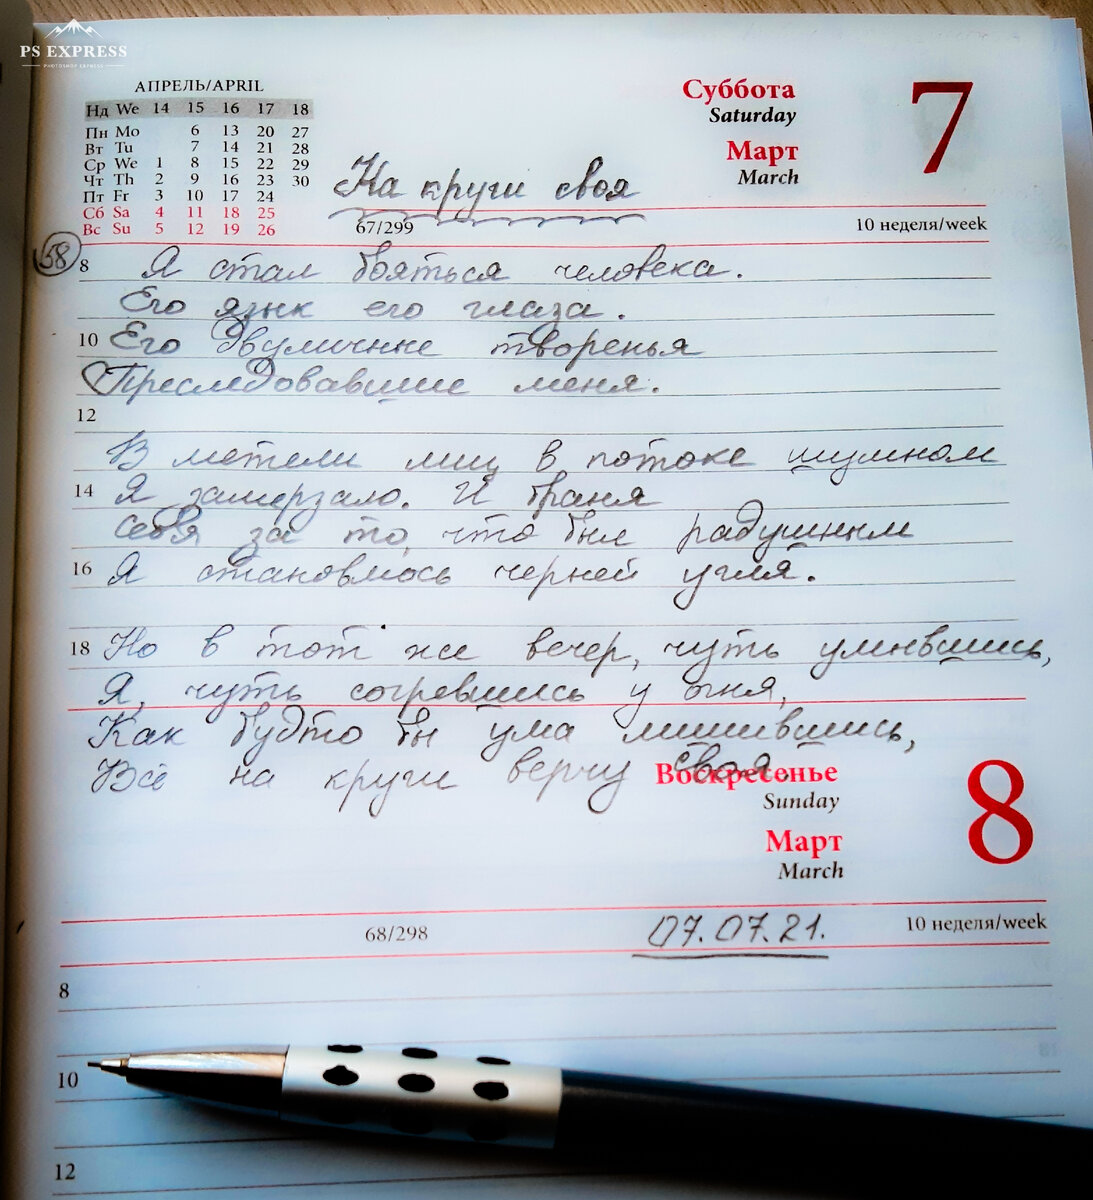 PS EXPRESS
PHOTOSHOP EXPRESS
АПРЕЛЬ/APRIL
Нд We 14 15 16 17 18
Пн Mo 6 13 20 27
Вт Tu 7 14 21 28
Ср We 1 8 15 22 29
Чт Th 2 9 16 23 30
Пт Fr 3 10 17 24
Сб Sa 4 11 18 25
Вс Su 5 12 19 26
Суббота
Saturday
Март
March
7
На круги своя
67/299
10 неделя/week
58
8 Я стал бояться человека.
Его язык его глаза.
10 Его двуличные творенья
Преследовавшие меня.
12
В метели лиц в потоке шумном
14 Я замерзало. И браня
себя за то, что был радушным
16 Я становлюсь черней угля.
18 Но в тот же вечер, чуть умнвшись,
Я, чуть согревшись у огня,
Как будто бы ума лишившись,
Всё на круги верчу своя.
Воскресенье
Sunday
Март
March
8
68/298
07.07.21.
10 неделя/week
8
10
12